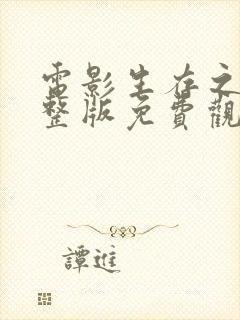 電影生存之
整版免費觀
譚進